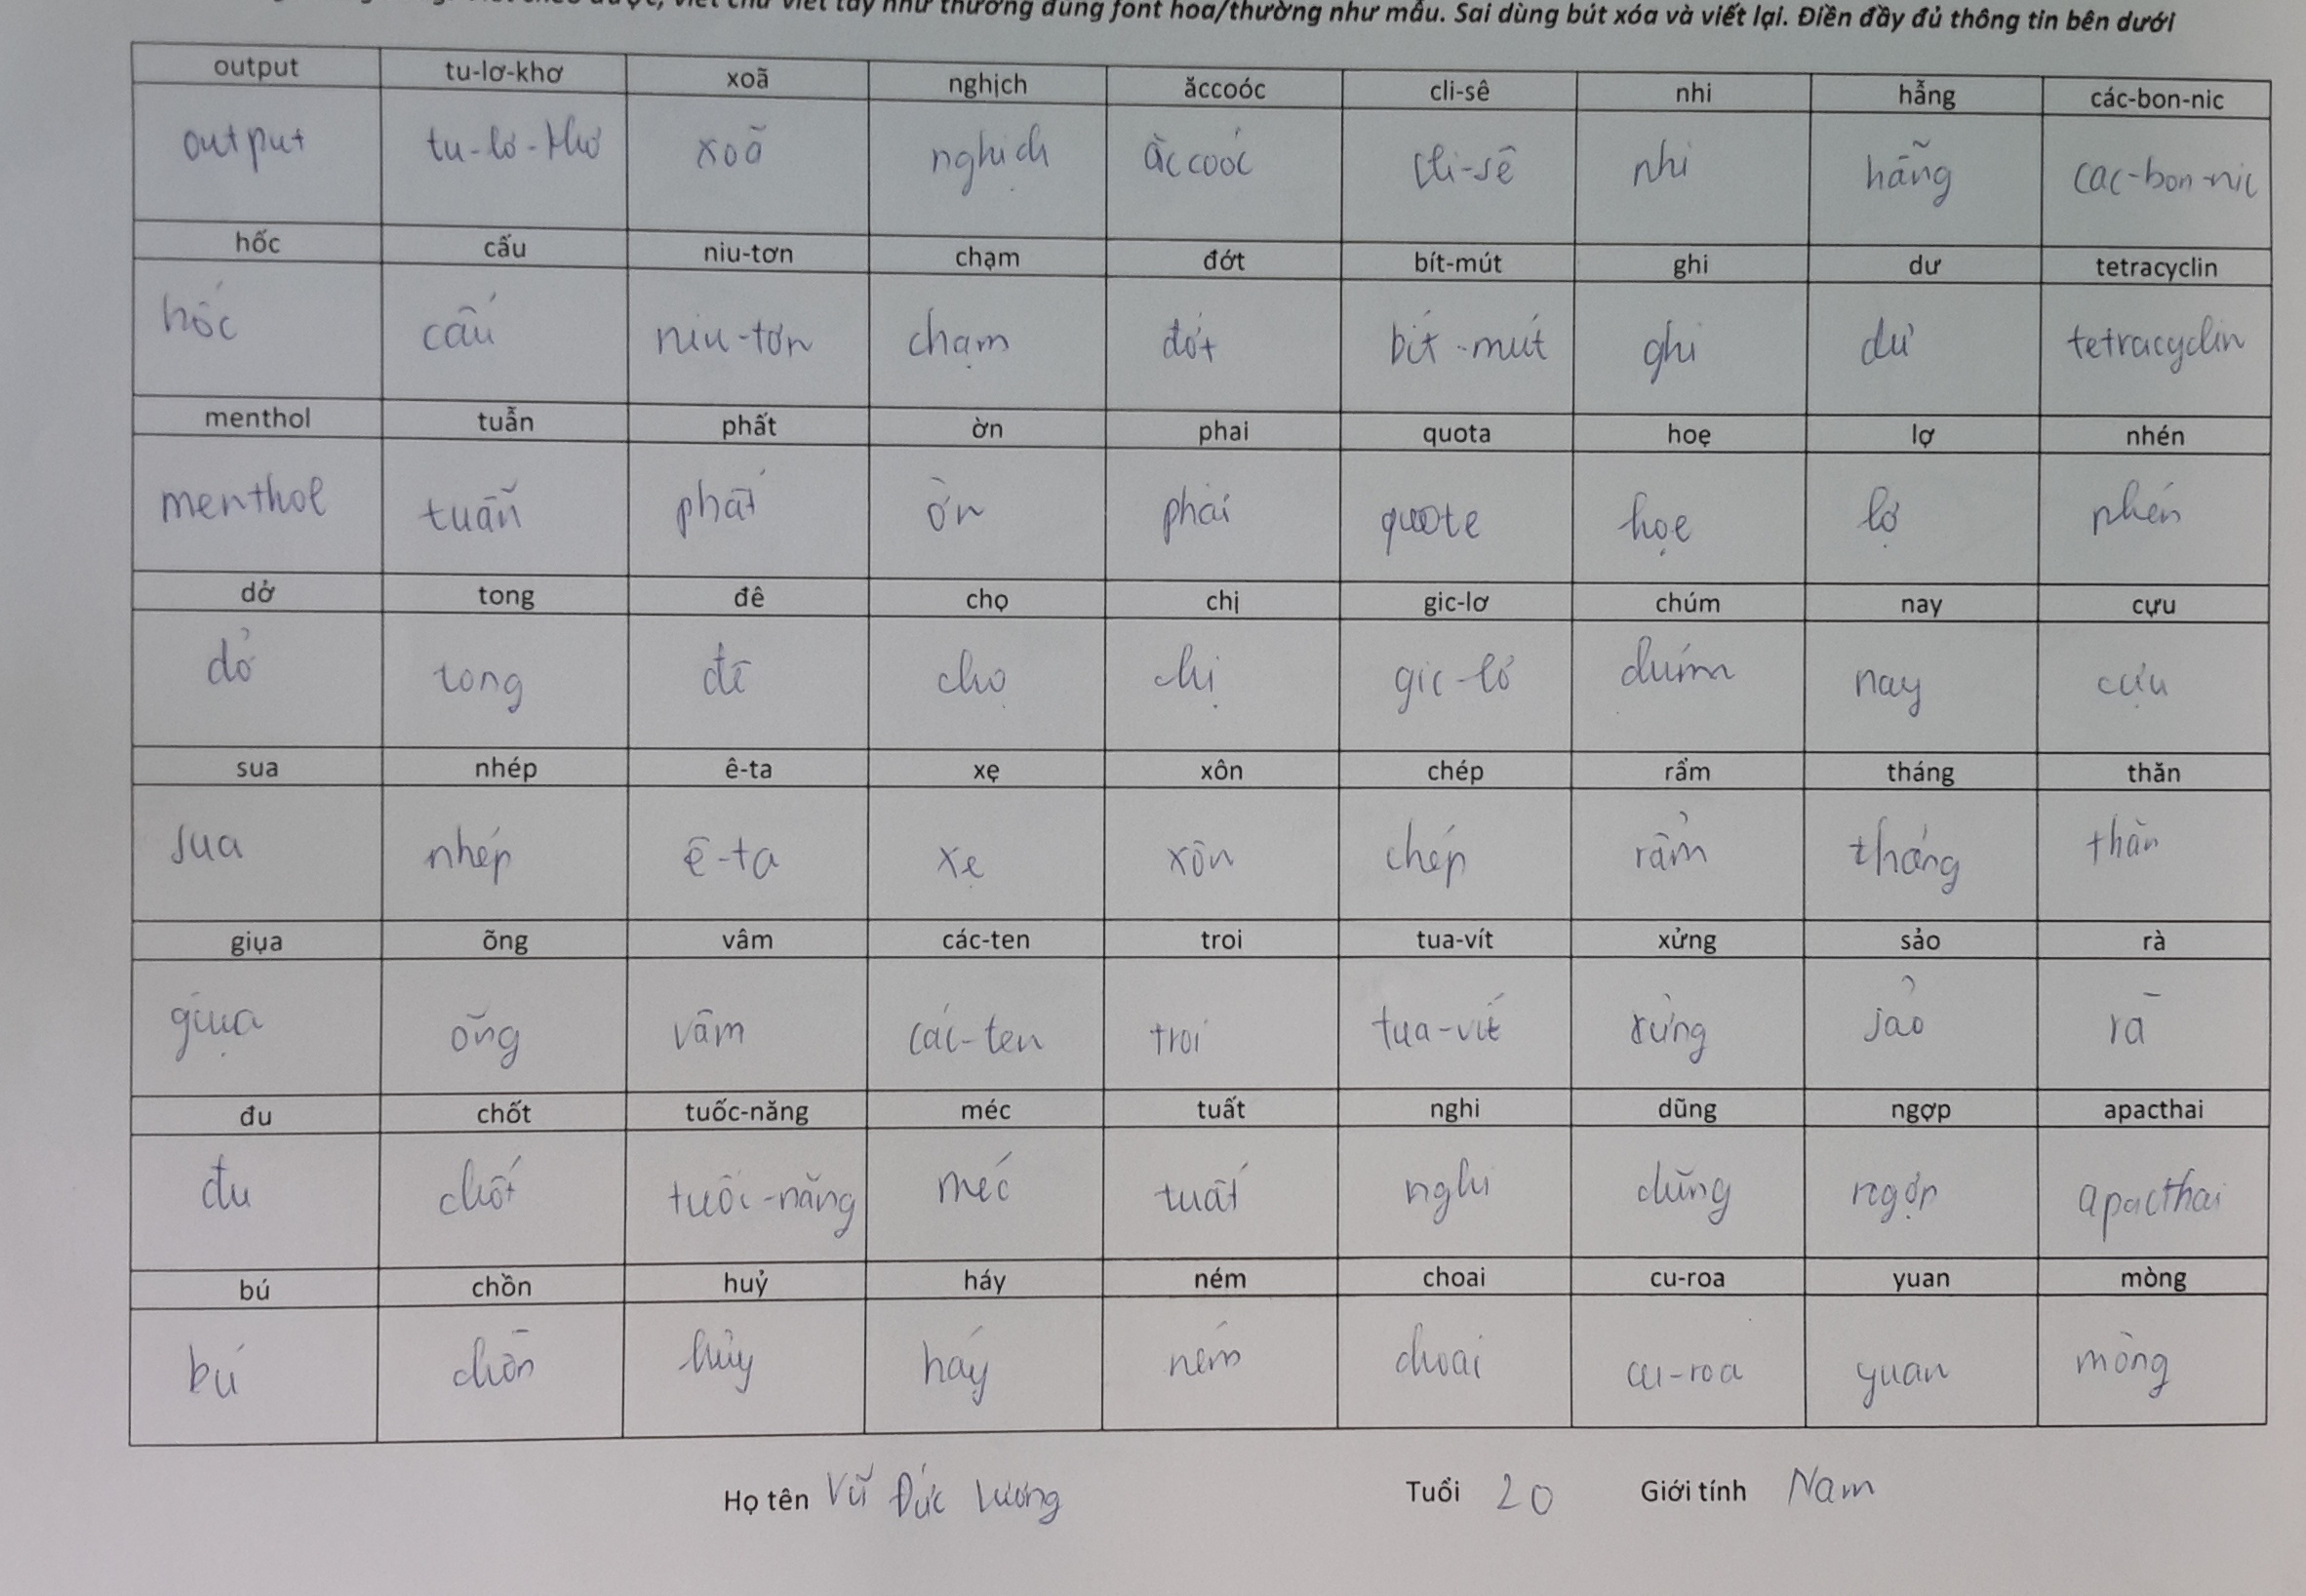 viết chữ viết tay như thường dùng font hoa/thường như mẫu. Sai dùng bút xóa và viết lại. Điền đầy đủ thông tin bên dưới
output tu-lơ-khơ xoã nghịch ăccoóc cli-sê nhi hẵng các-bon-nic
output tu-lơ-khơ xoã nghịch ăccoóc cli-sê nhi hẵng cac-bon-nic
hốc cấu niu-tơn chạm đớt bít-mút ghi dư tetracyclin
hốc cấu niu-tơn chạm đớt bít-mút ghi dư tetracyclin
menthol tuẫn phất ờn phai quota hoẹ lợ nhén
menthol tuẫn phất ờn phai quote họe lợ nhén
dở tong đê chọ chị gic-lơ chúm nay cựu
dở tong đê chọ chị gic-lơ chúm nay cựu
sua nhép ê-ta xẹ xôn chép rẩm tháng thăn
sua nhép ê-ta xẹ xôn chép rẩm tháng thăn
giụa õng vâm các-ten troi tua-vít xửng sảo rà
giụa õng vâm các-ten troi tua-vít xửng sảo rà
đu chốt tuốc-năng méc tuất nghi dũng ngợp apacthai
đu chốt tuốc-năng méc tuất nghi dũng ngợp apacthai
bú chồn huỷ háy ném choai cu-roa yuan mòng
bú chồn hủy háy ném choai cu-roa yuan mòng
Họ tên Vũ Đức Lương Tuổi 20 Giới tính Nam